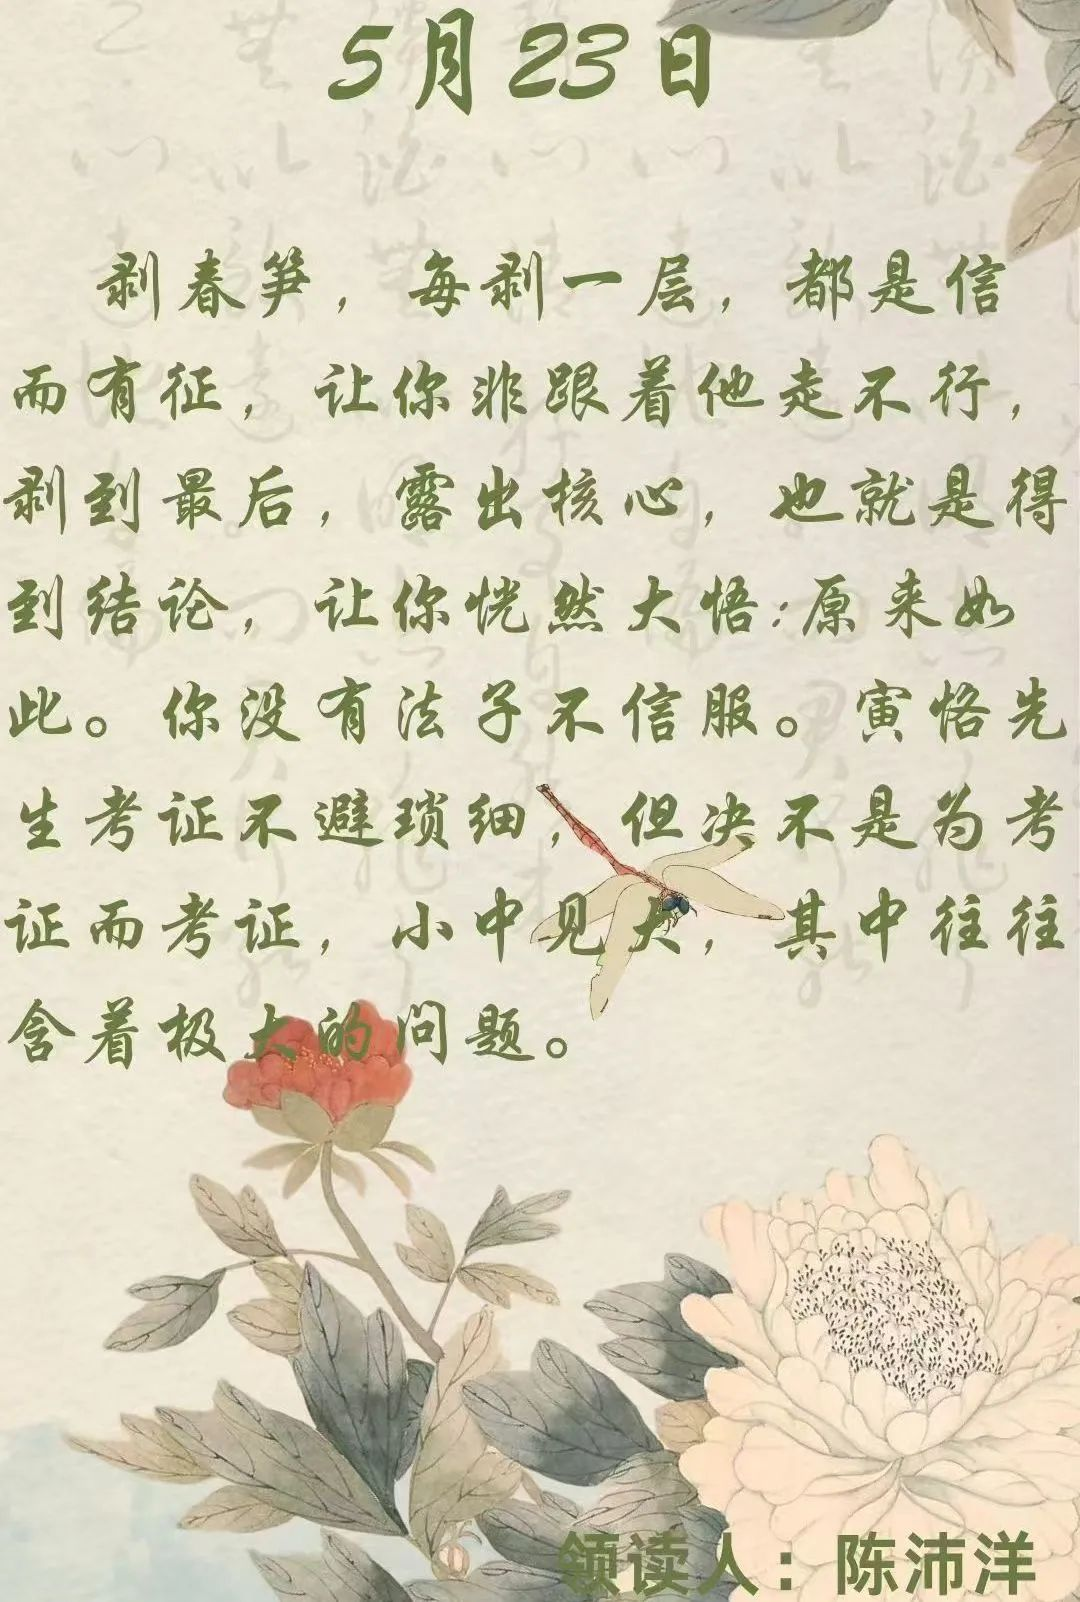 5月23日
剥春笋，每剥一层，都是信
而有征，让你非跟着他走不行，
剥到最后，露出核心，也就是得
到结论，让你恍然大悟:原来如
此。你没有法子不信服。寅恪先
生考证不避琐细，但决不是为考
证而考证，小中见大，其中往往
含着极大的问题。
领读人：陈沛洋